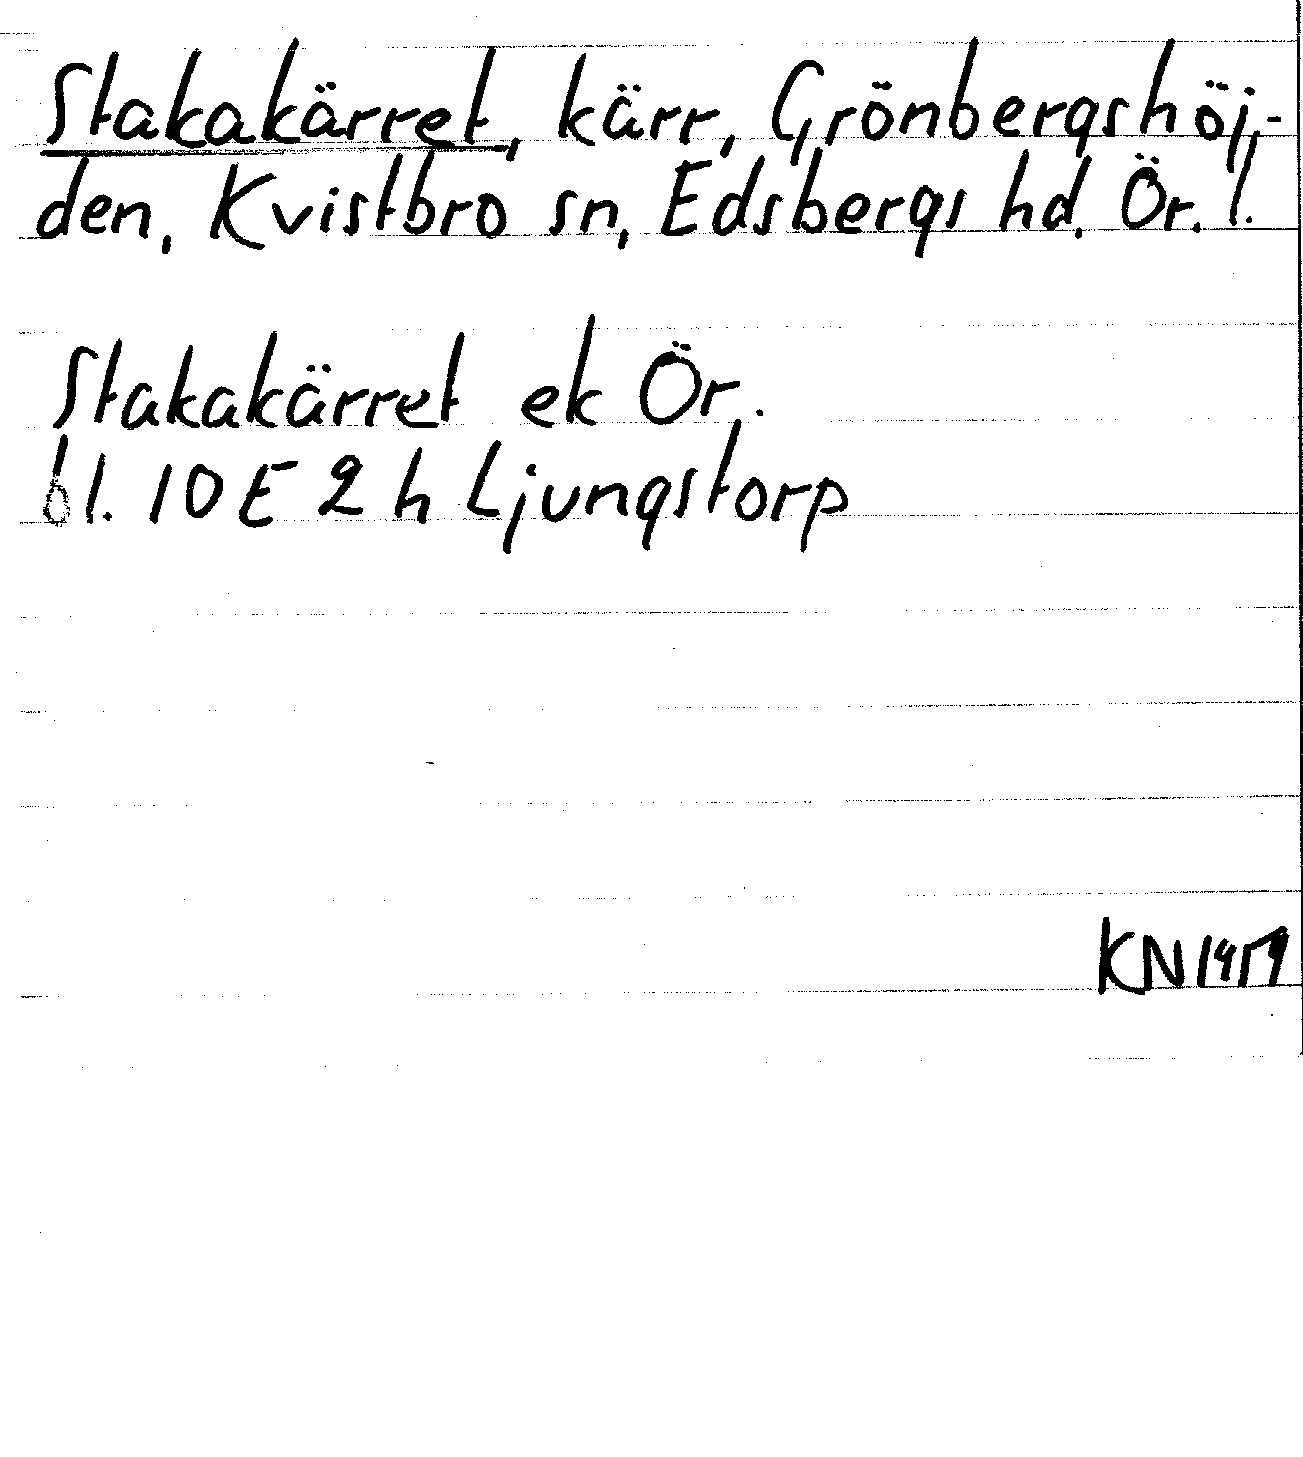 Stakakärret, kärr, Grönbergshöj-
den, Kvistbro sn, Edsbergs hd, Ör. l.
Stakakärret ek Ör.
bl. 10 E 2 h Ljungstorp